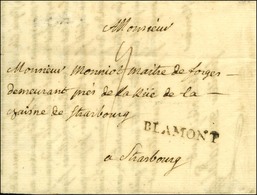 A Monsieur
Monsieur Monniot maitre de forges
demeurant prés de la Rüe de la
graisne de Strasbourg
BLAMONT
a Strasbourg